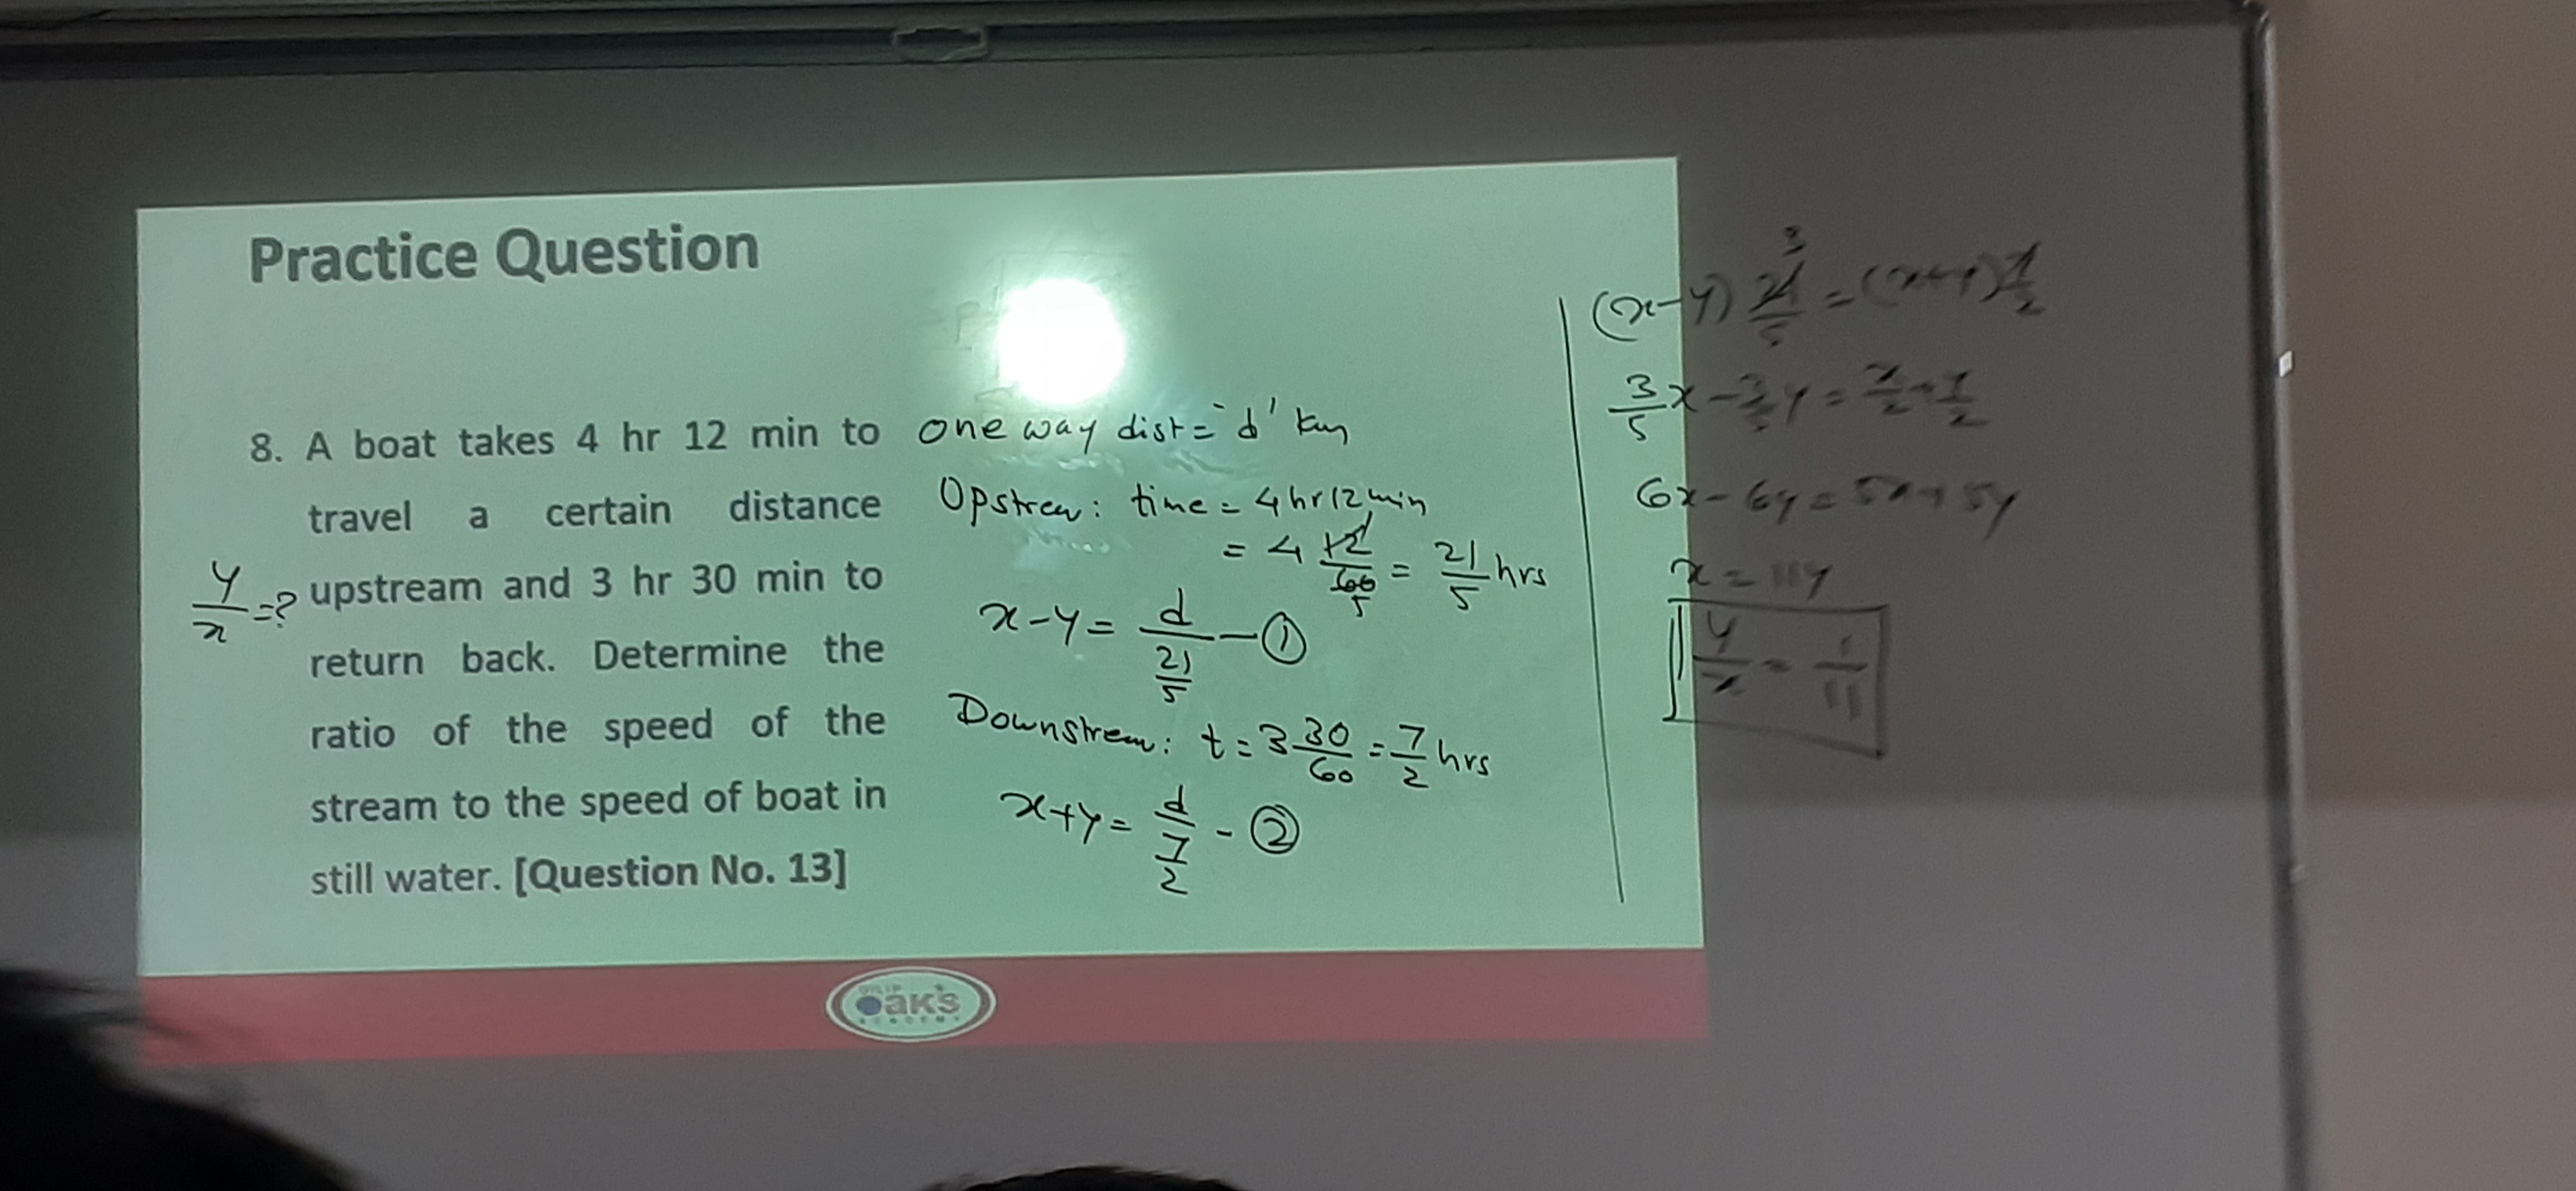 Practice Question
8. A boat takes 4 hr 12 min to
travel a certain distance
upstream and 3 hr 30 min to
return back. Determine the
ratio of the speed of the
stream to the speed of boat in
still water. [Question No. 13]
y/x =?
one way dist = 'd' km
Upstream: time = 4 hr 12 min
= 4 12/60 5 = 21/5 hrs
x-y = d/(21/5) - ①
Downstream: t = 3 30/60 = 7/2 hrs
x+y = d/(7/2) - ②
(x-y) 21/5 3 = (x+y) 7/2
3/5 x - 3/5 y = x/2 + y/2
6x - 6y = 5x + 5y
x = 11y
y/x = 1/11
DILIP
OAK'S
ACADEMY